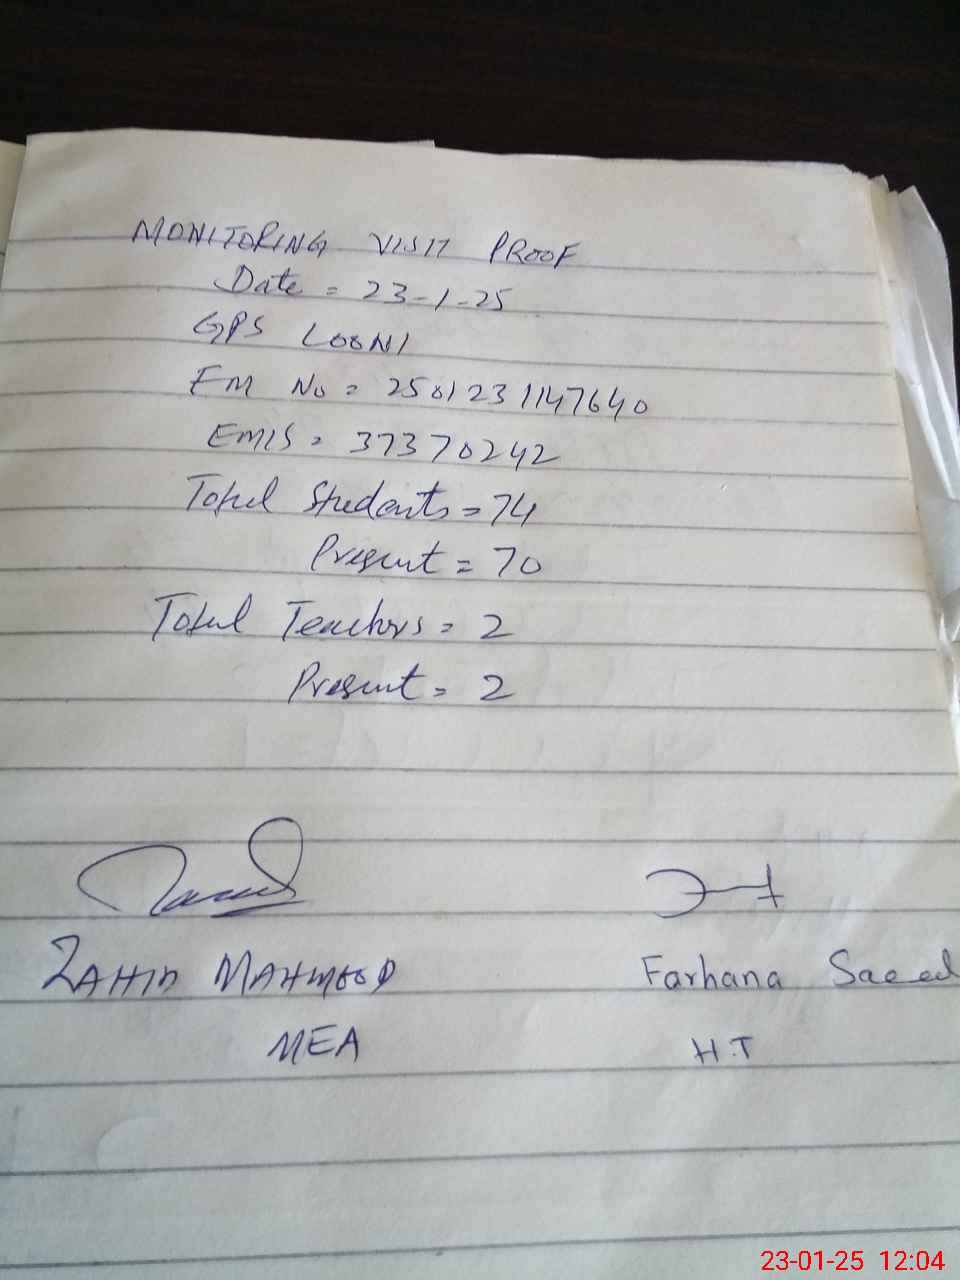 MONITORING VISIT PROOF
Date = 23-1-25
GPS LOONI
EM No = 2501231147640
EMIS = 37370242
Total Students = 74
Present = 70
Total Teachers = 2
Present = 2
ZAHID MAHMOOD
Farhana Saeed
MEA
H.T
23-01-25 12:04